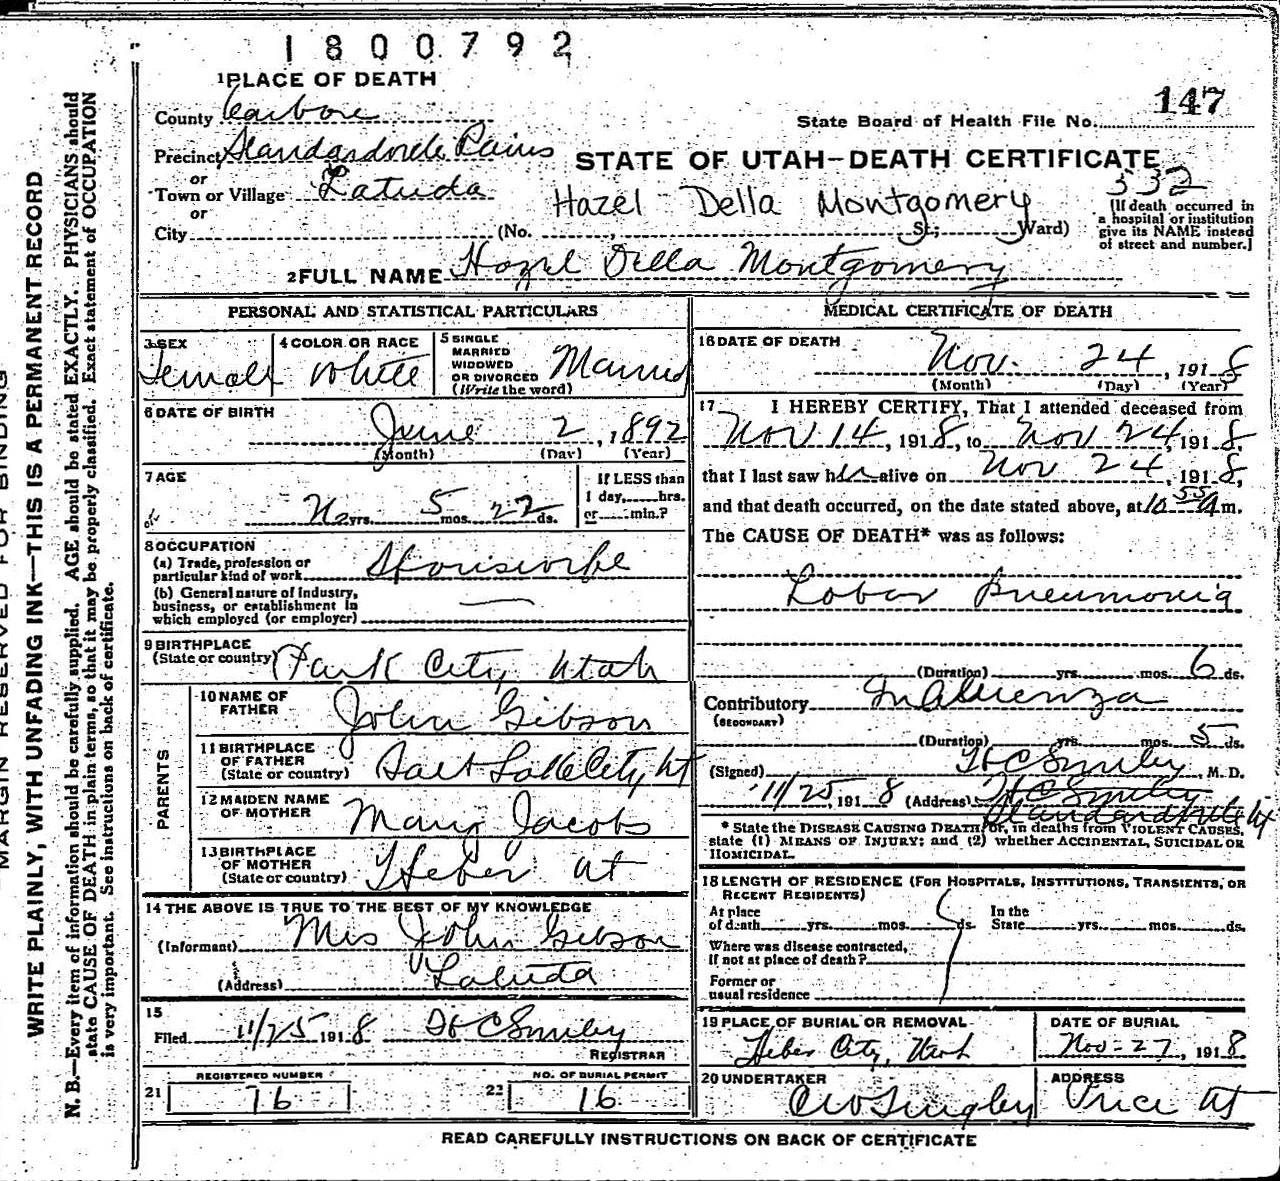 1800792
1 PLACE OF DEATH
147
County Carbon
State Board of Health File No.
Precinct Standardville
STATE OF UTAH-DEATH CERTIFICATE
or
Town or Village Latuda
532
Hazel Della Montgomery
or
City (No. , St.; Ward)
[If death occurred in
a hospital or institution
give its NAME instead
of street and number.]
2 FULL NAME Hazel Della Montgomery
PERSONAL AND STATISTICAL PARTICULARS
3 SEX Female
4 COLOR OR RACE White
5 SINGLE
MARRIED
WIDOWED
OR DIVORCED
(Write the word) Married
6 DATE OF BIRTH
June 2, 1892
(Month) (Day) (Year)
7 AGE
yrs. 5 mos. 22 ds.
If LESS than
1 day, hrs.
or min.?
8 OCCUPATION
(a) Trade, profession or
particular kind of work Housewife
(b) General nature of industry,
business, or establishment in
which employed (or employer)
9 BIRTHPLACE
(State or country) Park City Utah
PARENTS
10 NAME OF
FATHER John Gibson
11 BIRTHPLACE
OF FATHER
(State or country) Salt Lake City, Ut
12 MAIDEN NAME
OF MOTHER Mary Jacobs
13 BIRTHPLACE
OF MOTHER
(State or country) Heber Ut
14 THE ABOVE IS TRUE TO THE BEST OF MY KNOWLEDGE
(Informant) Mrs John Gibson
(Address) Latuda
15
Filed 11/25 1918 H C Smiley
REGISTRAR
REGISTERED NUMBER
21 76
NO. OF BURIAL PERMIT
22 16
MEDICAL CERTIFICATE OF DEATH
16 DATE OF DEATH
Nov. 24, 1918
(Month) (Day) (Year)
17 I HEREBY CERTIFY, That I attended deceased from
Nov 14, 1918, to Nov 24, 1918,
that I last saw her alive on Nov 24, 1918,
and that death occurred, on the date stated above, at 10 55 a m.
The CAUSE OF DEATH* was as follows:
Lobar Pneumonia
(Duration) yrs. mos. 6 ds.
Contributory Influenza
(SECONDARY)
(Duration) yrs. mos. 5 ds.
(Signed) H C Smiley, M. D.
11/25, 1918 (Address) H C Smiley
Standardville Ut
* State the DISEASE CAUSING DEATH, or, in deaths from VIOLENT CAUSES,
state (1) MEANS OF INJURY; and (2) whether ACCIDENTAL, SUICIDAL OR
HOMICIDAL.
18 LENGTH OF RESIDENCE (FOR HOSPITALS, INSTITUTIONS, TRANSIENTS, OR
RECENT RESIDENTS)
At place
of death yrs. mos. ds.
In the
State yrs. mos. ds.
Where was disease contracted,
if not at place of death?
Former or
usual residence
19 PLACE OF BURIAL OR REMOVAL
Heber City, Utah
DATE OF BURIAL
Nov-27, 1918
20 UNDERTAKER
ADDRESS
Price Ut
READ CAREFULLY INSTRUCTIONS ON BACK OF CERTIFICATE
MARGIN RESERVED FOR BINDING
WRITE PLAINLY, WITH UNFADING INK—THIS IS A PERMANENT RECORD
N. B.—Every item of information should be carefully supplied. AGE should be stated EXACTLY. PHYSICIANS should
state CAUSE OF DEATH in plain terms, so that it may be properly classified. Exact statement of OCCUPATION
is very important. See instructions on back of certificate.